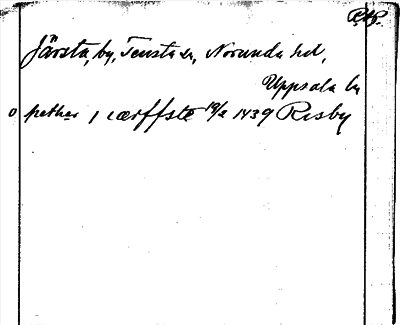 RAP.
Järsta, by, Tensta sn, Norunda hd,
Uppsala län
o pether i iærffsta 19/2 1439 Risby